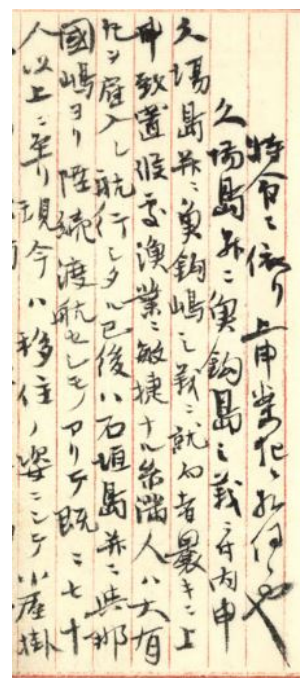 特命ニ依り上申案犯ニ相伺候也
久場島并ニ魚釣島之義ニ付内申
久場島并ニ魚釣嶋之義ニ就而者曩キニ上
申致置候処漁業ニ敏捷ナル糸満人ハ大有
江雇入レ航行シタル已後ハ石垣島并ニ与那
國嶋ヨリ陸続渡航セシモノアリテ既ニ七十
人以上ニ至リ現今ハ移住ノ姿ニシテ小屋掛